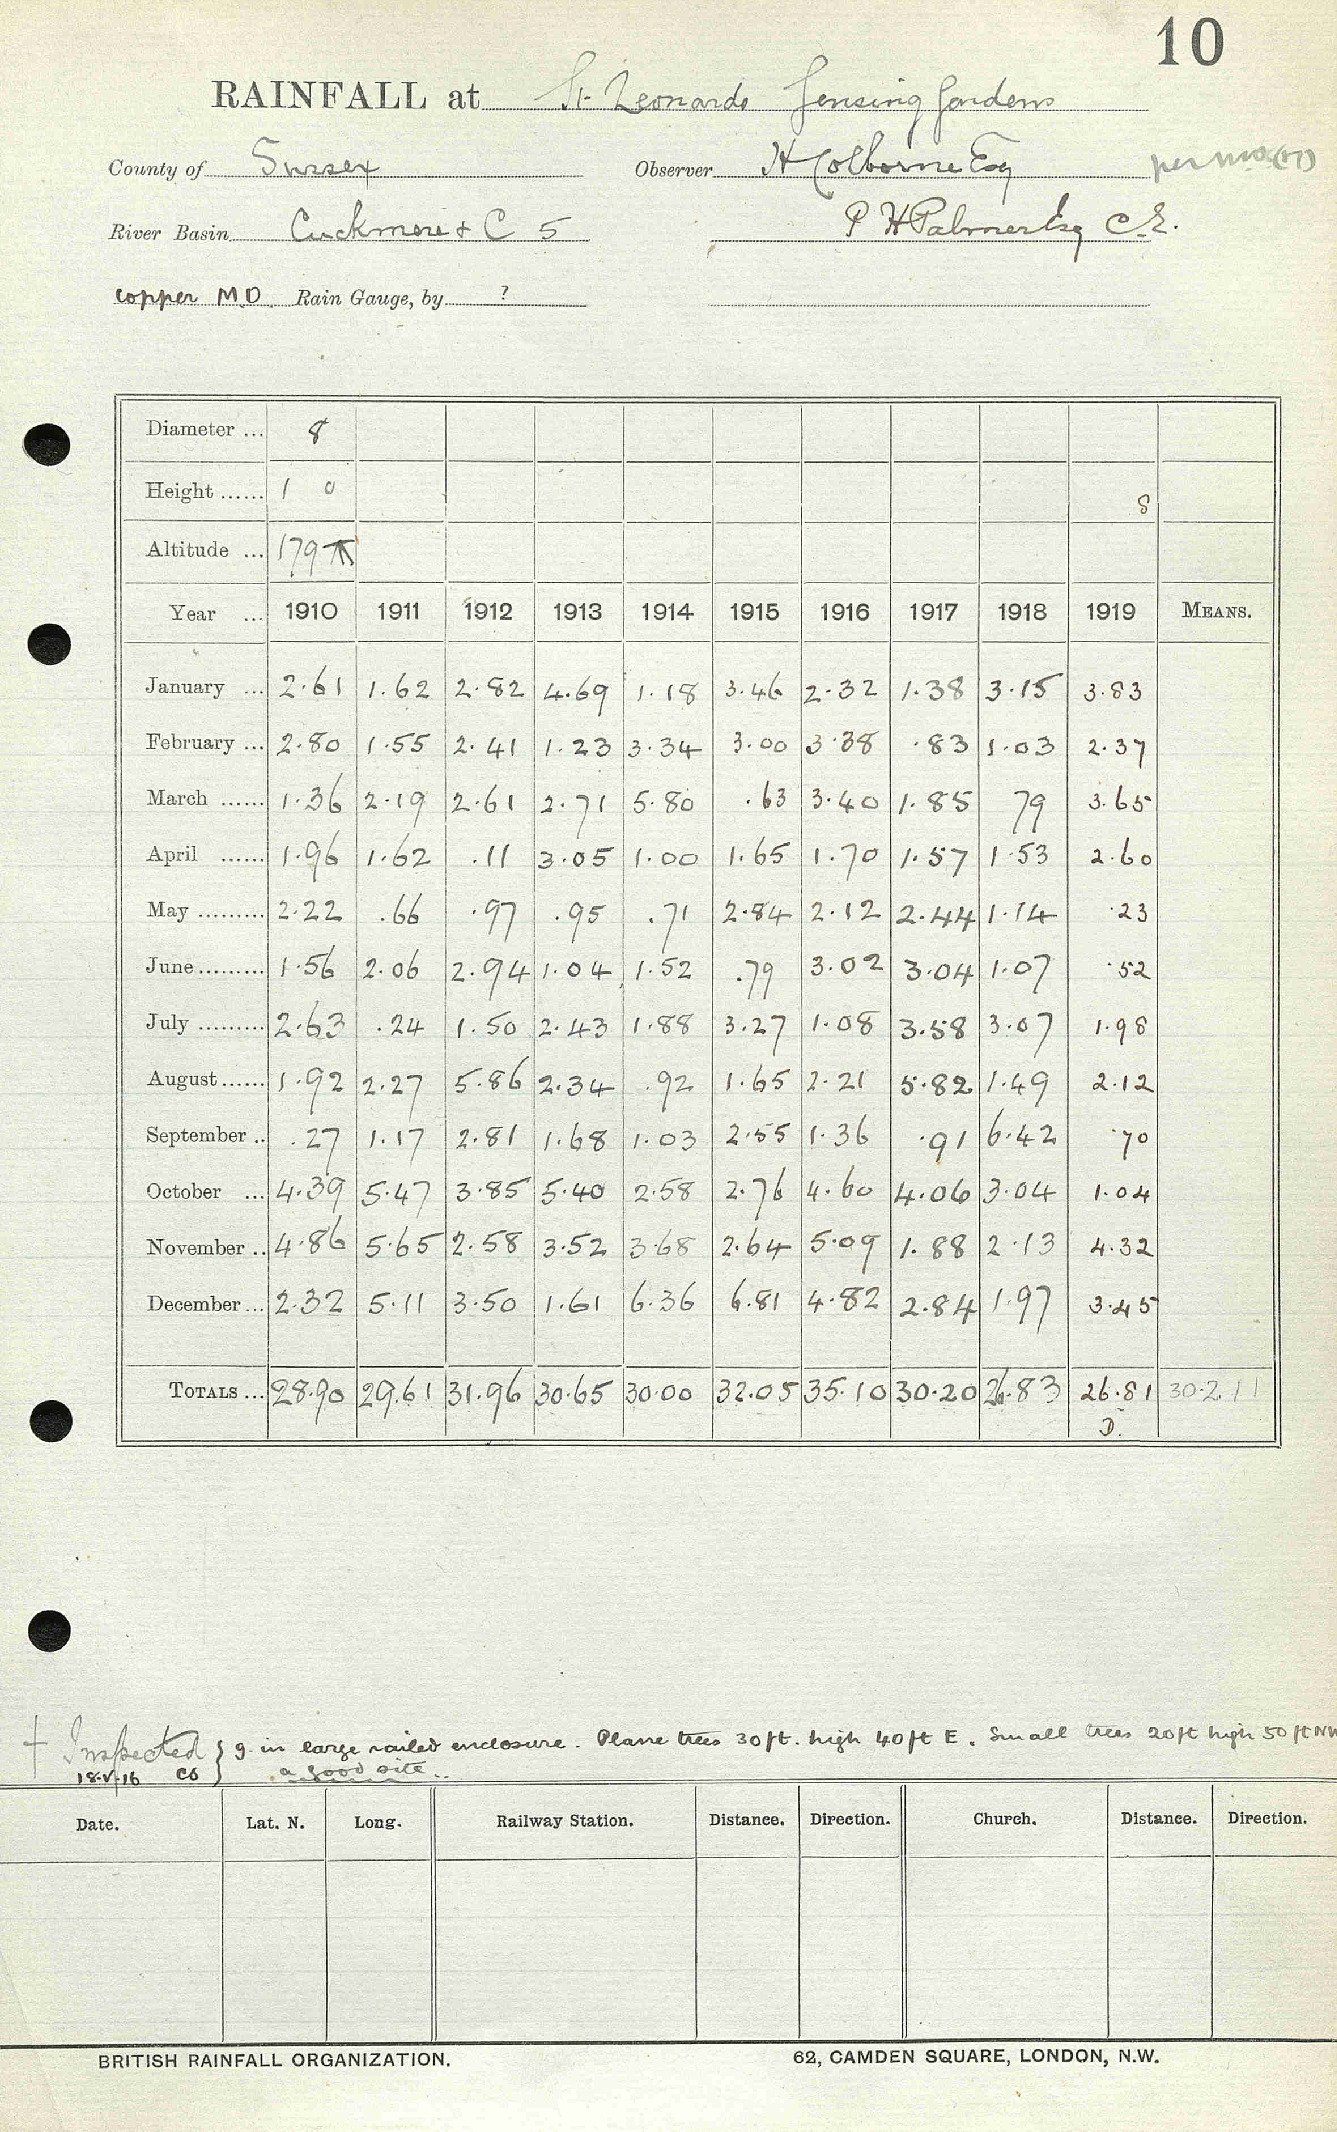 10
RAINFALL at St Leonards Gensing Gardens
County of Sussex Observer H Colborne Esq
River Basin Cuckmere & C 5 P H Palmer Esq C.E.
copper M.O. Rain Gauge, by ?
Diameter ... 8
Height ...... 1 0 8
Altitude ... 179
Year ... 1910 1911 1912 1913 1914 1915 1916 1917 1918 1919 MEANS.
January ... 2.61 1.62 2.82 4.69 1.18 3.46 2.32 1.38 3.15 3.83
February ... 2.80 1.55 2.41 1.23 3.34 3.00 3.38 .83 1.03 2.37
March ...... 1.36 2.19 2.61 2.71 5.80 .63 3.40 1.85 79 3.65
April ...... 1.96 1.62 .11 3.05 1.00 1.65 1.70 1.57 1.53 2.60
May ......... 2.22 .66 .97 .95 .71 2.84 2.12 2.44 1.14 .23
June ......... 1.56 2.06 2.94 1.04 1.52 .79 3.02 3.04 1.07 .52
July ......... 2.63 .24 1.50 2.43 1.88 3.27 1.08 3.58 3.07 1.98
August ...... 1.92 2.27 5.86 2.34 .92 1.65 2.21 5.82 1.49 2.12
September .. .27 1.17 2.81 1.68 1.03 2.55 1.36 .91 6.42 .70
October ... 4.39 5.47 3.85 5.40 2.58 2.76 4.60 4.06 3.04 1.04
November .. 4.86 5.65 2.58 3.52 3.68 2.64 5.09 1.88 2.13 4.32
December ... 2.32 5.11 3.50 1.61 6.36 6.81 4.82 2.84 1.97 3.45
TOTALS ... 28.90 29.61 31.96 30.65 30.00 32.05 35.10 30.20 26.83 26.81 30.211
D.
† Inspected } g. in large railed enclosure. Plane trees 30 ft. high 40 ft E. Small trees 20 ft high 50 ft NW
18.V.16 CS } a good site.
Date. Lat. N. Long. Railway Station. Distance. Direction. Church. Distance. Direction.
BRITISH RAINFALL ORGANIZATION. 62, CAMDEN SQUARE, LONDON, N.W.